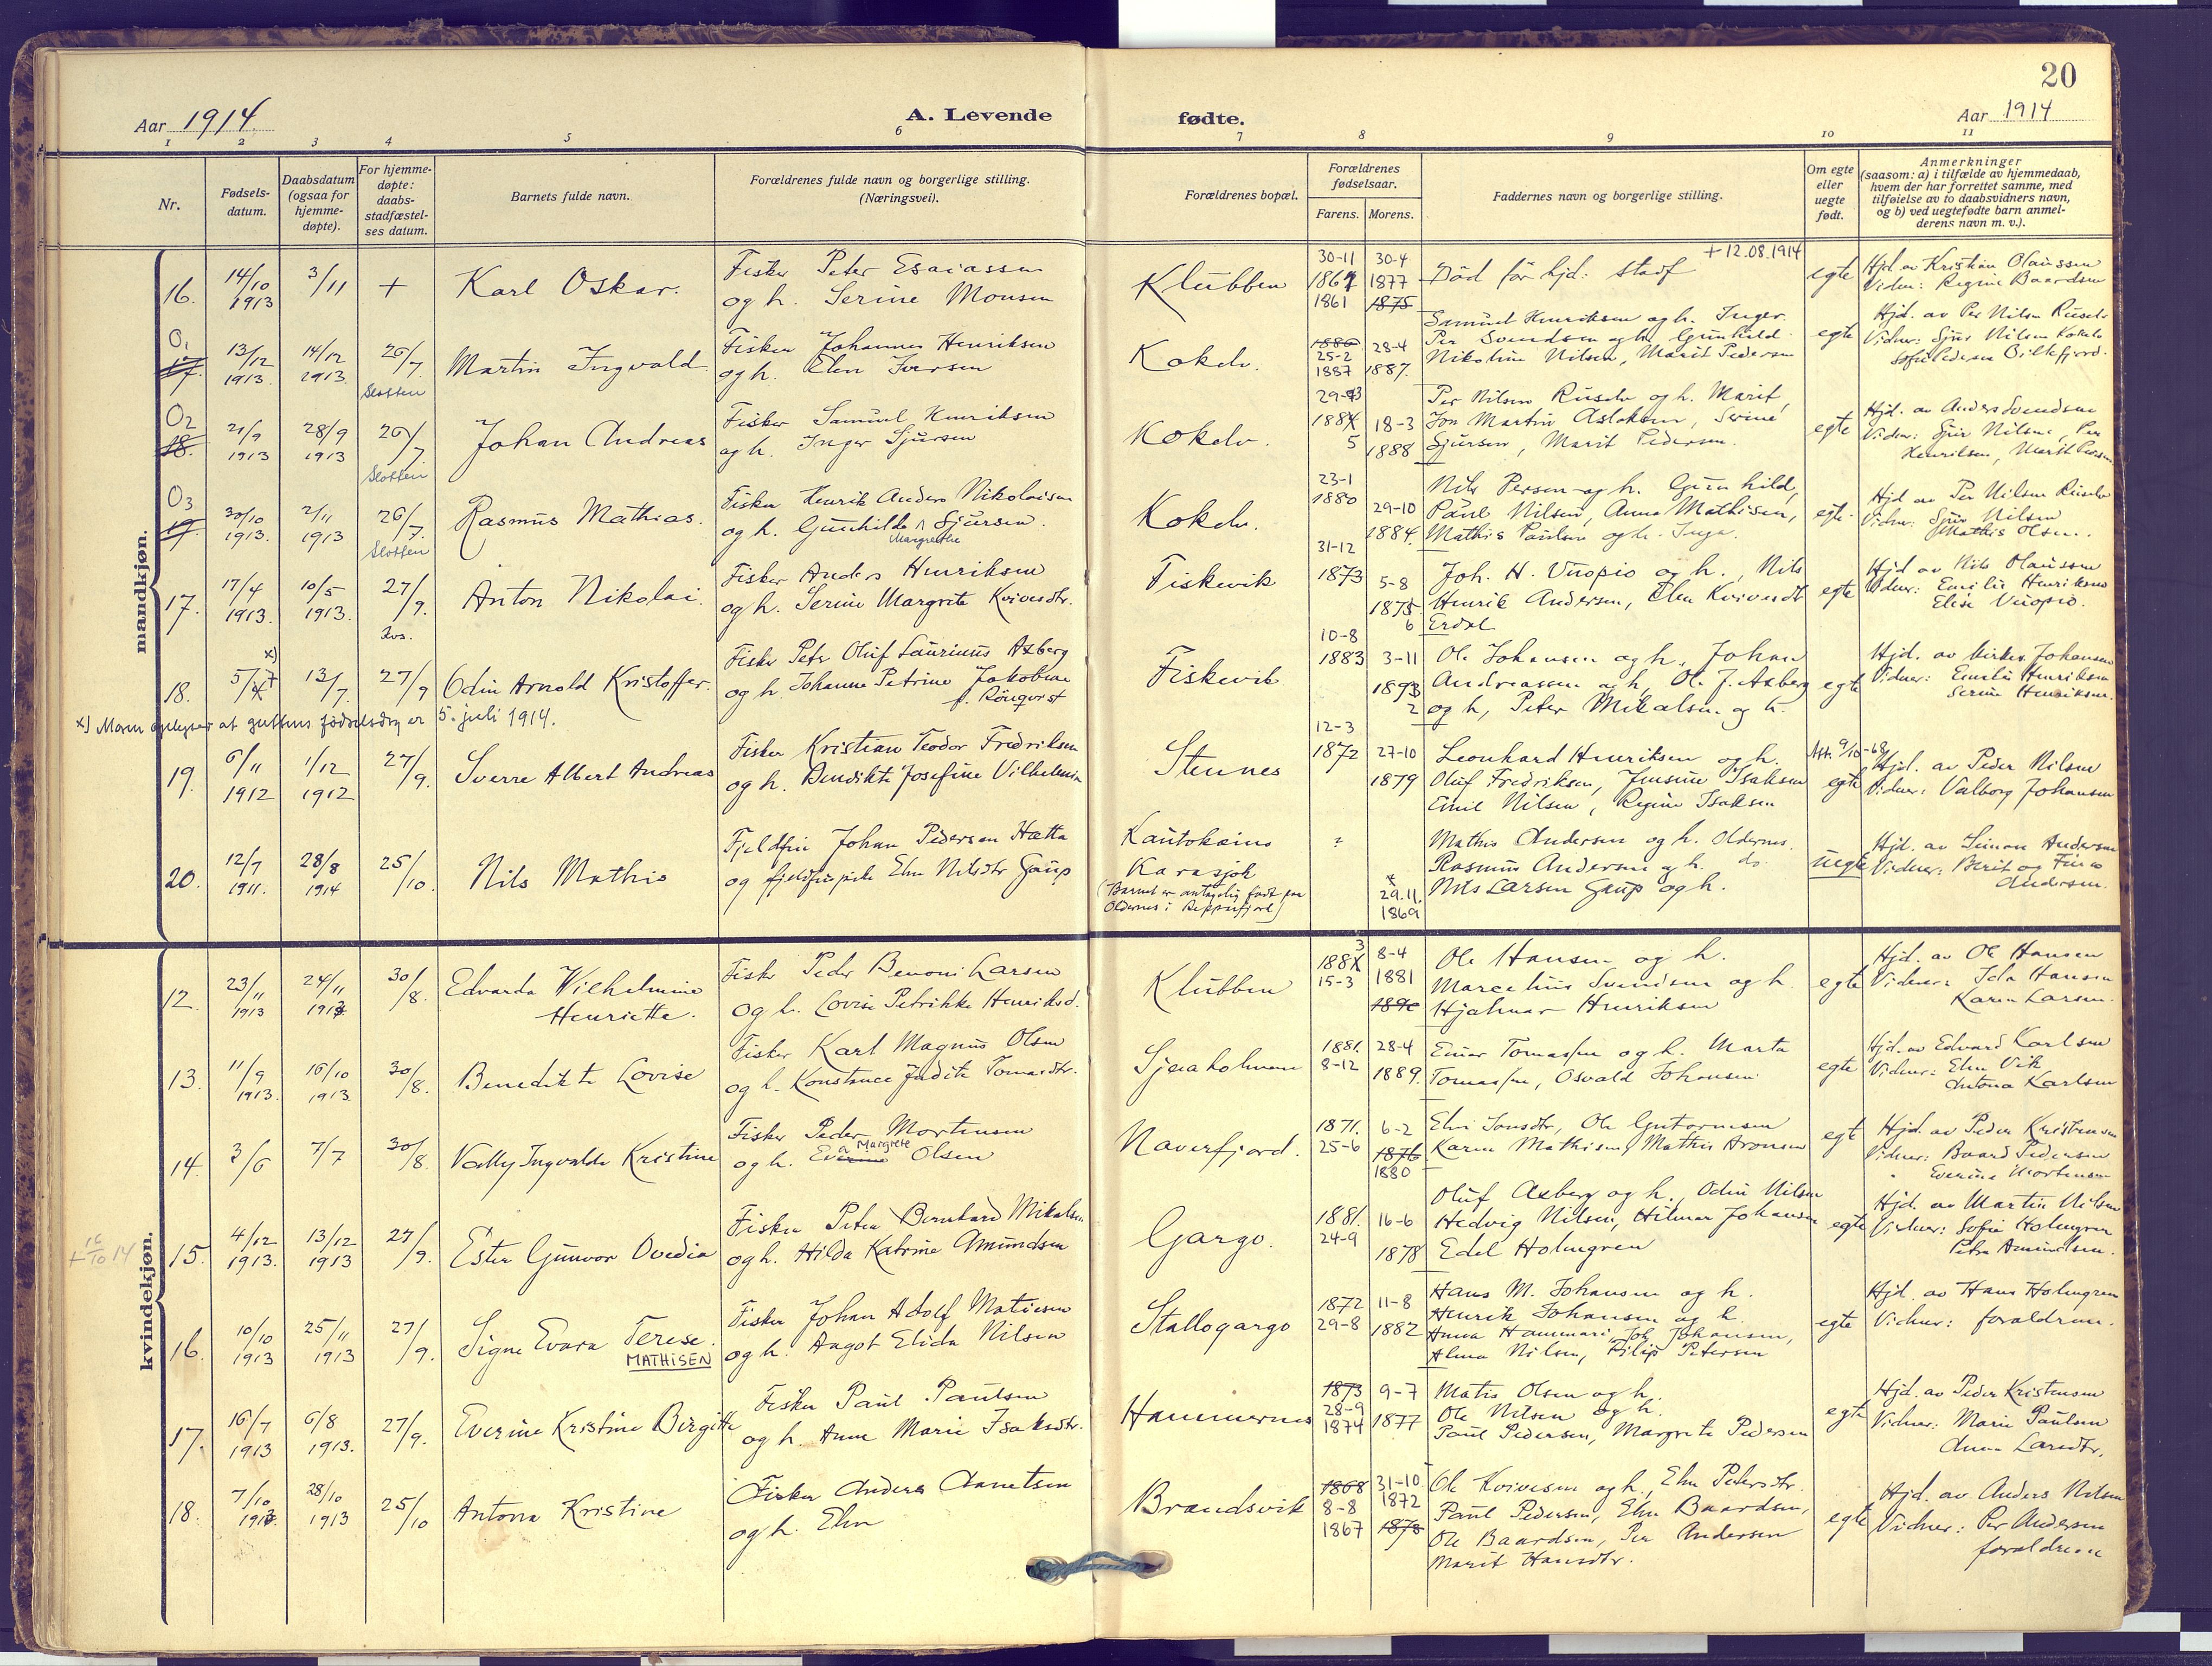 20
Aar 1914
A. Levende fødte.
Aar 1914
1 2 3 4 5 6 7 8 9 10 11
Nr.
Fødsels-datum.
Daabsdatum (ogsaa for hjemme-døpte).
For hjemme-døpte: daabs-stadfæstel-ses datum.
Barnets fulde navn.
Forældrenes fulde navn og borgerlige stilling. (Næringsvei).
Forældrenes bopæl.
Forældrenes fødselsaar.
Farens. Morens.
Faddernes navn og borgerlige stilling.
Om egte eller uegte født.
Anmerkninger
(saasom: a) i tilfælde av hjemmedaab, hvem der har forrettet samme, med tilføielse av to daabsvidners navn, og b) ved uegtefødte barn anmel-derens navn m. v.).
mandkjøn.
16. 14/10 1913 3/11 + Karl Oskar.
Fisker Peter Esaiassen
og h. Serine Monsen
Klubben
30-11 1861 30-4 1877 1875
Død før hjd. stadf +12.08.1914
egte
Hjd av Kristian Olaussen
Vidner: Regine Baardsen
O1 17. 13/12 1913. 14/12 1913. 26/7. Slotten
Martin Ingvald
Fisker Johannes Henriksen
og h. Elen Iversen
Kokelv.
1886 25-2 1887 28-4 1887.
Samuel Henriksen og h. Inger
Per Svendsen og h. Gunhild
Nikoline Nilsen, Marit Pedersen
egte
Hjd. av Per Nilsen Ruselv
Vidner: Sjur Nilsen Kokelv
Sofie Pedersen Billefjord.
O2 18. 21/9 1913 28/9 1913 26/7 Slotten
Johan Andreas
Fisker Samuel Henriksen
og h. Inger Sjursen
Kokelv.
18-3 1888
Per Nilsen Ruselv og h. Marit
Jon Martin Aslaksen, Serine
Sjursen, Marit Pedersen.
egte
Hjd. av Anders Svendsen
Vidner: Sjur Nilsen, Per
Henriksen, Marit Persen
O3 19. 30/10 1913. 2/11 1913 26/7. Slotten
Rasmus Mathias.
Fisker Henrik Anders Nikolaisen
og h. Gunhilde Margrethe Sjursen.
Kokelv.
23-1 1880 29-10 1884.
Nils Persen og h. Gunhild,
Paul Nilsen, Anna Mathisen,
Mathis Paulsen og h. Inga.
egte
Hjd av Per Nilsen Ruselv
Vidner: Sjur Nilsen
Mathis Olsen.
17. 17/4 1913. 10/5 1913. 27/9. Kvs.
Anton Nikolai.
Fisker Anders Henriksen
og h. Serine Margrete Kvivesdtr.
Fiskevik
31-12 1873 5-8 1875 6
Joh. H. Vuopio og h., Nils
Henrik Andersen, Elen Kvivesdtr
Erdal
egte
Hjd av Nils Olaussen
Vidner: Emilie Henriksen
Elise Vuopio.
18. 5/7 x) 13/7. 27/9
Odin Arnold Kristoffer.
Fisker Petr Oluf Laurinus Axberg
og h. Johanne Petrine Jakobine
f. Rönqvist
Fiskevik
10-8 1883 3-11 1893 2
Ole Johansen og h. Johan
Andreassen og h, Ol. J. Axberg
og h, Peter Mikalsen og h.
egte
Hjd. av kirkes. Johansen
Vidner: Emilie Henriksen
Serine Henriksen.
x) Moren oplyser at guttens födselsdag er 5. juli 1914.
19. 6/11 1912 1/12 1912 27/9.
Sverre Albert Andreas
Fisker Kristian Teodor Fredriksen
og h. Bendikte Josefine Vilhelmin
Stennes
12-3 1872 27-10 1879
Leonhard Henriksen og h.
Oluf Fredriksen, Jensine Isaksen
Emil Nilsen, Regine Isaksen
Att. 9/10-68
egte
Hjd. av Peder Nilsen
Vidner: Valborg Johansen
20. 12/7 1911. 28/8 1914 25/10.
Nils Mathis
Fjeldfin Johan Pedersen Hætta
og fjeldfinpike Elen Nilsdtr Gaup
Kautokeino
Karasjok
(Barnet er antagelig født paa
Oldernes i Repparfjord)
? 29.11. 1869
Mathis Andersen og h. Oldernes.
Rasmus Andersen og h. do.
Nils Larsen Gaup og h.
uegte
Hjd. av Simon Andersen
Vidner: Berit og Finn
Andersen.
kvindekjøn.
12. 23/11 1913 24/11 1913 30/8.
Edvarda Wilhelmine
Henriette.
Fisker Peder Benoni Larsen
og h. Lovise Petrikke Henriksd.
Klubben
1883 15-3 8-4 1881 1890
Ole Hansen og h.
Marcelius Svendsen og h.
Hjalmar Henriksen
egte
Hjd. av Ole Hansen
Vidner: Ida Hansen
Karen Larsen.
13. 11/9 1913. 16/10 1913. 30/8.
Benedikte Lovise
Fisker Karl Magnus Olsen
og h. Konstance Judith Tomasdtr.
Sjaaholmen
1881. 8-12 28-4 1889.
Einar Tomassen og h. Marta
Tomassen, Osvald Johansen
egte
Hjd. av Edvard Karlsen
Vidner: Elen Vik
Antona Karlsen
14. 3/6 7/7 30/8.
Vally Ingvalda Kristine
Fisker Peder Mortensen
og h. Eva Margrete Olsen
Naverfjord.
1871. 25-6 6-2 1876 1880
Elen Jonsdtr, Ole Guttormsen
Karen Mathisen, Mathis Aronsen
egte
Hjd. av Peder Kristensen
Vidner: Baard Pedersen
Everine Mortensen
+ 16/10 14
15. 4/12 1913. 13/12 1913 27/9.
Ester Gunvor Ovedia
Fisker Peter Bernhard Mikalsen
og h. Hilda Katrine Amundsen
Gargo.
1881. 24-9 16-6 1878
Oluf Axberg og h., Odin Nilsen
Hedvig Nilsen, Hilmar Johansen
Edel Holmgren
egte
Hjd. av Martin Nilsen
Vidner: Sofie Holmgren
Petra Amundsen.
16. 10/10 1913 25/11 1913 27/9.
Signe Evara Terese.
MATHISEN
Fisker Johan Adolf Matisen
og h. Aagot Elida Nilsen
Stallogargo
1872 29-8 11-8 1882
Hans M. Johansen og h.
Henrik Johansen og h.
Anna Hammari, Joh. Johansen,
Alma Nilsen, Filip Petersen
egte
Hjd. av Hans Holmgren
Vidner: forældrene.
17. 16/7 1913 6/8 1913. 27/9.
Everine Kristine Birgitte
Fisker Paul Paulsen
og h. Anne Marie Isaksdtr.
Hammernes
1873 28-9 1874 9-7 1877
Matis Olsen og h.
Ole Nilsen og h.
Paul Pedersen, Margrete Pedersen
egte
Hjd. av Peder Kristensen
Vidner: Marie Paulsen
Anna Larsdtr.
18. 7/10 1913. 28/10 1913 25/10
Antona Kristine
Fisker Anders Aanetsen
og h. Elen
Brandsvik
1868 8-8 1867 31-10 1872 1878
Ole Kvivesen og h., Elen Pedersdtr.
Paul Pedersen, Elen Baardsen,
Ole Baardsen, Per Andersen
Marit Hansdtr.
egte
Hjd. av Anders Nilsen
Vidner: Per Andersen
forældrene